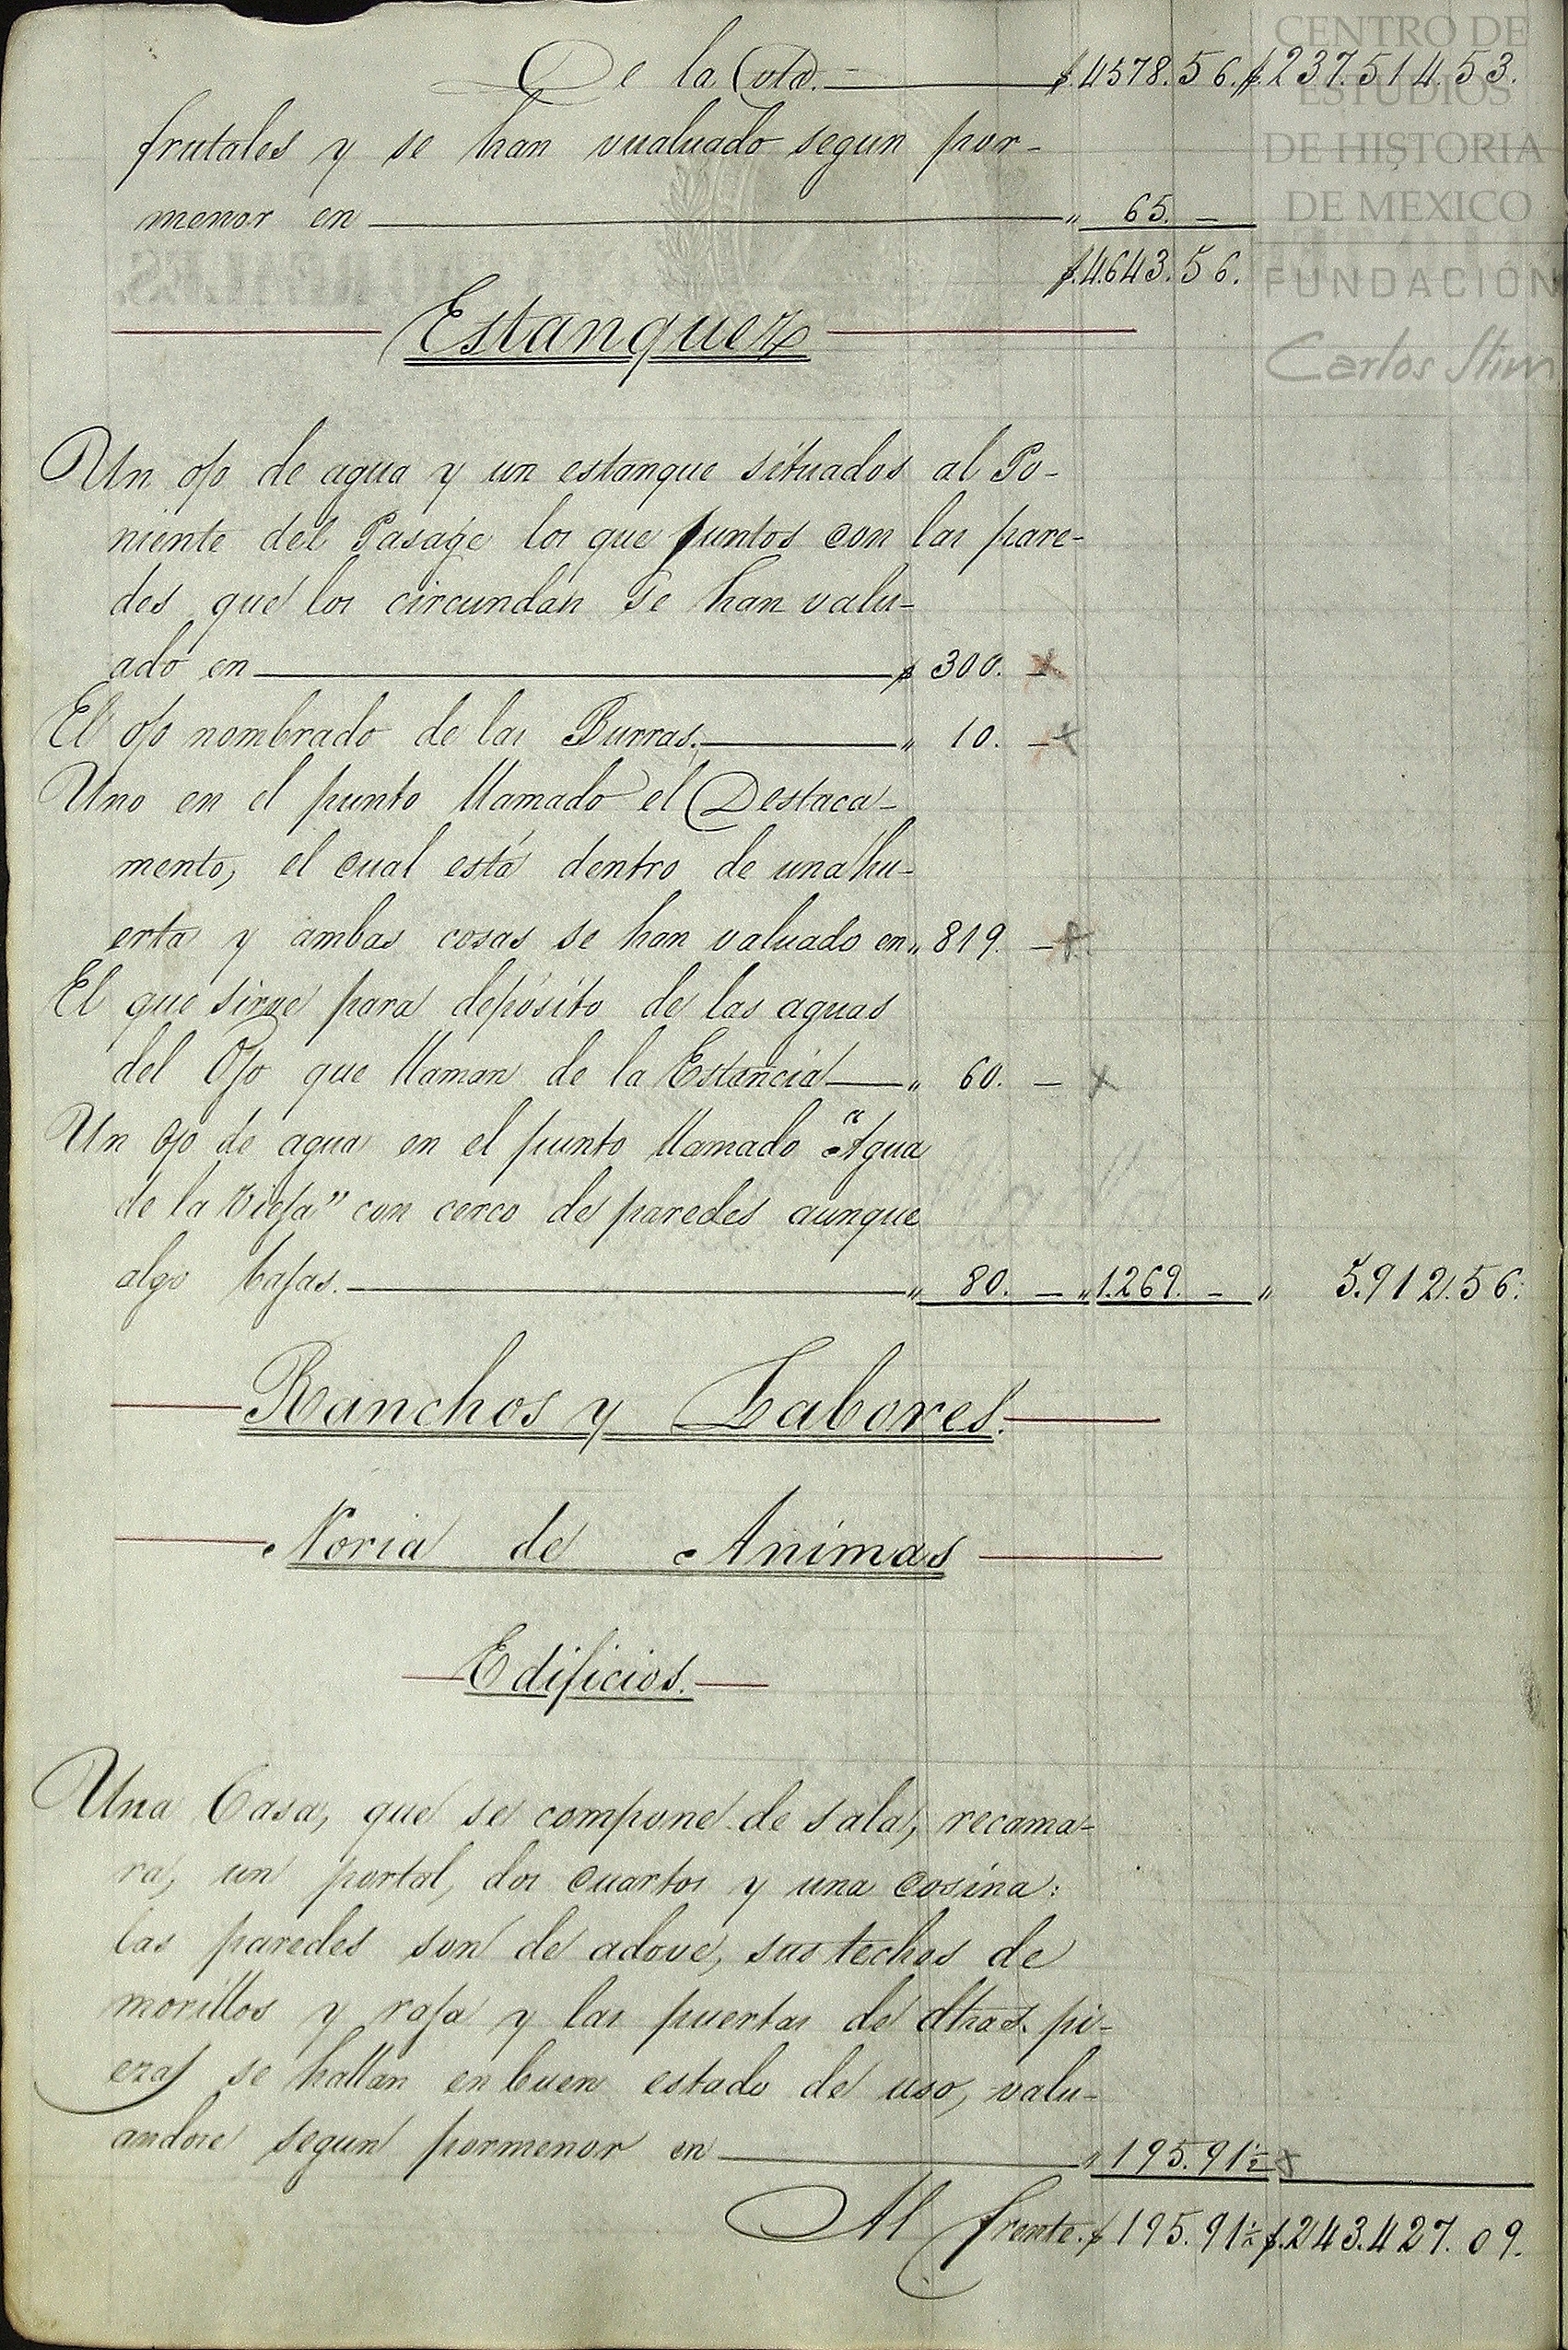 De la Vta. $4578.56. $237.514.53.
frutales y se han vualuado segun por-
menor en " 65. –
$4.643.56.
Estanques
Un ojo de agua y un estanque situados al Po-
niente del Pasage los que juntos con las pare-
des que los circundan se han valu-
ado en $ 300. –
El ojo nombrado de las Burras. " 10. –
Uno en el punto llamado el Destaca-
mento, el cual está dentro de una hu-
erta y ambas cosas se han valuado en " 819. –
El que sirve para depósito de las aguas
del Ojo que llaman de la Estancia " 60. –
Un ojo de agua en el punto llamado "Agua
de la Vieja" con cerco de paredes aunque
algo bajas. " 80. – " 1.269. – " 5.912.56.
Ranchos y Labores.
Noria de Animas
Edificios.
Una Casa, que se compone de sala, recama-
ra, un portal, dos cuartos y una cosina:
las paredes son de adove, sus techos de
morillos y raja y las puertas de dhas. pi-
ezas se hallan en buen estado de uso, valu-
andose segun pormenor en " 195.91½
Al frente. $195.91½ $.243.427.09.
CENTRO DE
ESTUDIOS
DE HISTORIA
DE MEXICO
FUNDACIÓN
Carlos Slim